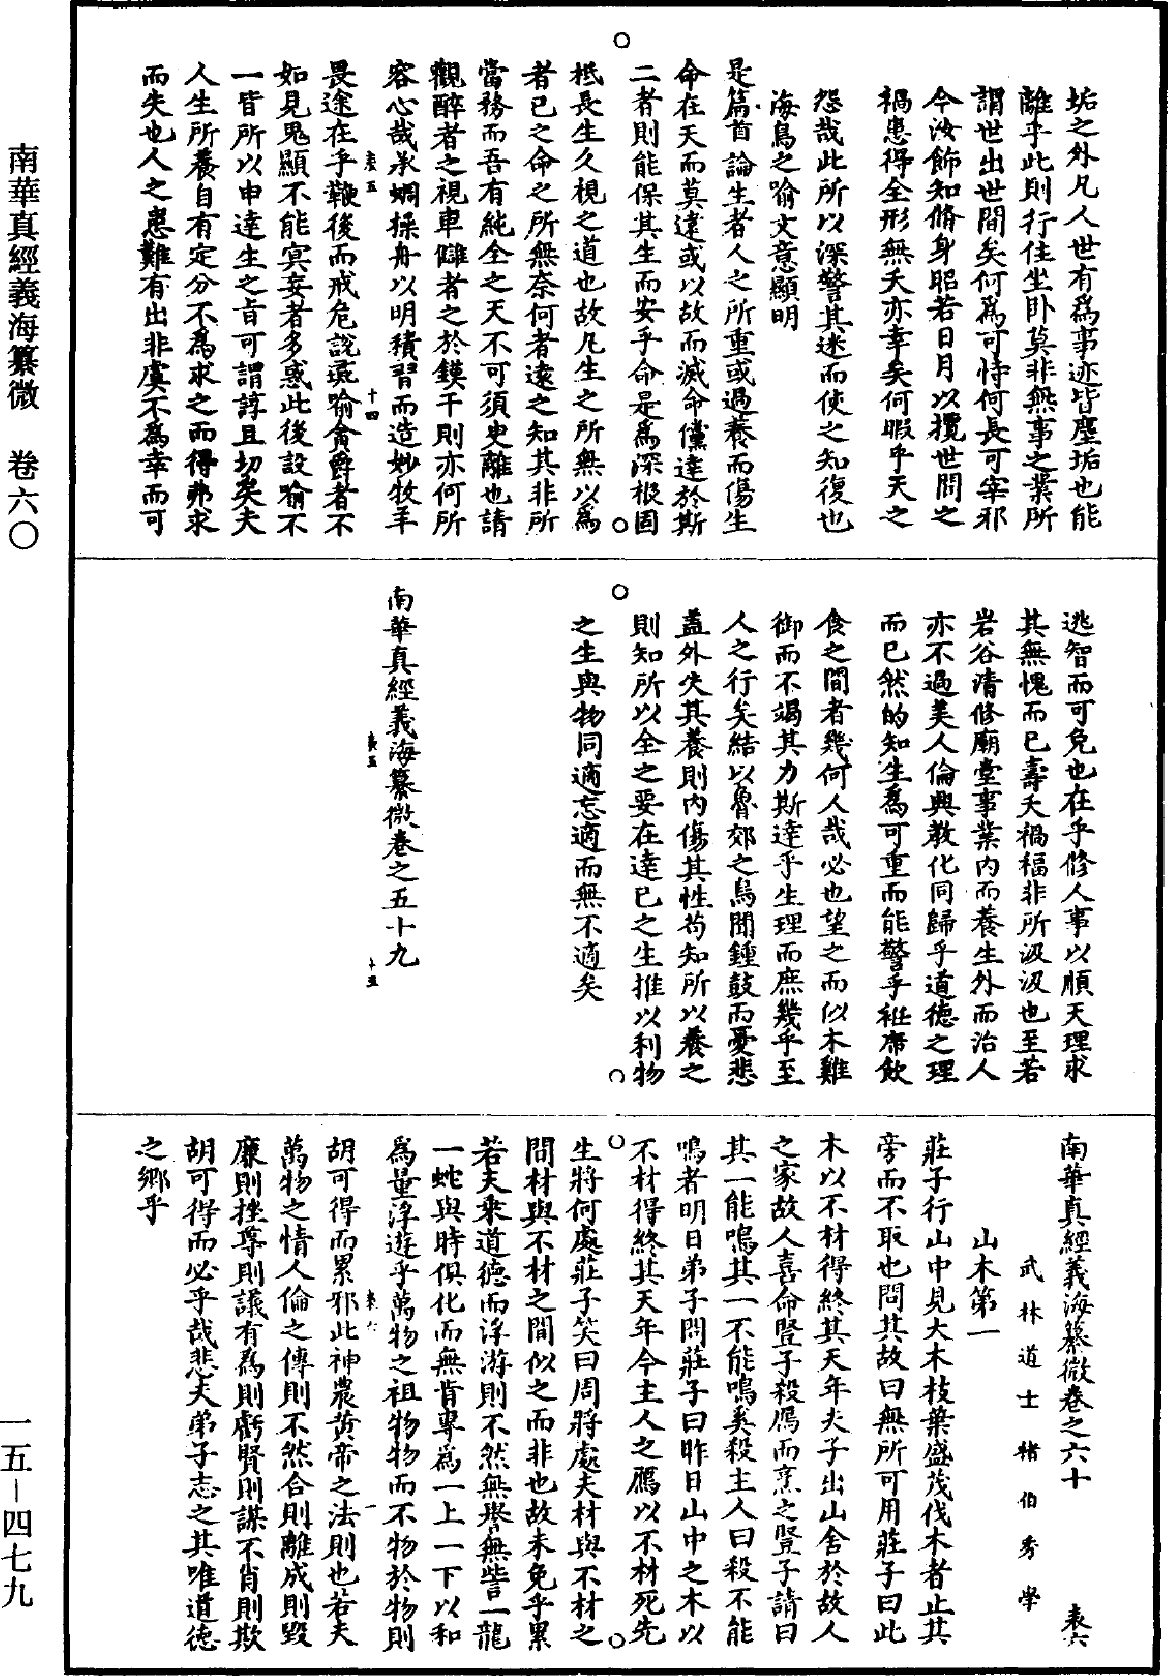 垢之外凡人世有為事迹皆塵垢也能
離乎此則行住坐卧莫非無事之業所
謂世出世間矣何為可恃何長可宰邪
今汝飾知脩身昭若日月以攬世間之
禍患得全形無夭亦幸矣何暇乎天之
怨哉此所以深警其迷而使之知復也
海鳥之喻文意顯明
是篇首論生者人之所重或過養而傷生
命在天而莫違或以故而滅命儻達於斯
二者則能保其生而安乎命是為深根固
柢長生久視之道也故凡生之所無以為
者已之命之所無奈何者遠之知其非所
當務而吾有純全之天不可須臾離也請
觀醉者之視車讎者之於鏌干則亦何所
容心哉承蜩操舟以明積習而造妙牧羊
畏途在乎鞭後而戒危說彘喻貪爵者不
如見鬼顯不能冥妄者多惑此後設喻不
一皆所以申達生之旨可謂諄且切矣夫
人生所養自有定分不為求之而得弗求
而失也人之患難有出非虞不為幸而可
逃智而可免也在乎修人事以順天理求
其無愧而已壽夭禍福非所汲汲也至若
岩谷清修廟堂事業內而養生外而治人
亦不過美人倫興教化同歸乎道德之理
而已然的知生為可重而能警乎衽席飲
食之間者幾何人哉必也望之而似木雞
御而不竭其力斯達乎生理而庶幾乎至
人之行矣結以魯郊之鳥聞鍾鼓而憂悲
蓋外失其養則內傷其性苟知所以養之
則知所以全之要在達已之生推以利物
之生與物同適忘適而無不適矣
南華真經義海纂微卷之五十九
南華真經義海纂微卷之六十
表六
武林道士褚伯秀學
山木第一
莊子行山中見大木枝葉盛茂伐木者止其
旁而不取也問其故曰無所可用莊子曰此
木以不材得終其天年夫子出山舍於故人
之家故人喜命豎子殺鴈而烹之豎子請曰
其一能鳴其一不能鳴奚殺主人曰殺不能
鳴者明日弟子問莊子曰昨日山中之木以
不材得終其天年今主人之鴈以不材死先
生將何處莊子笑曰周將處夫材與不材之
間材與不材之間似之而非也故未免乎累
若夫乘道德而浮游則不然無譽無訾一龍
一蛇與時俱化而無肯專為一上一下以和
為量浮遊乎萬物之祖物物而不物於物則
胡可得而累邪此神農黃帝之法則也若夫
萬物之情人倫之傳則不然合則離成則毀
廉則挫尊則議有為則虧賢則謀不肖則欺
胡可得而必乎哉悲夫弟子志之其唯道德
之鄉乎
南華真經義海纂微 卷六〇
一五－四七九